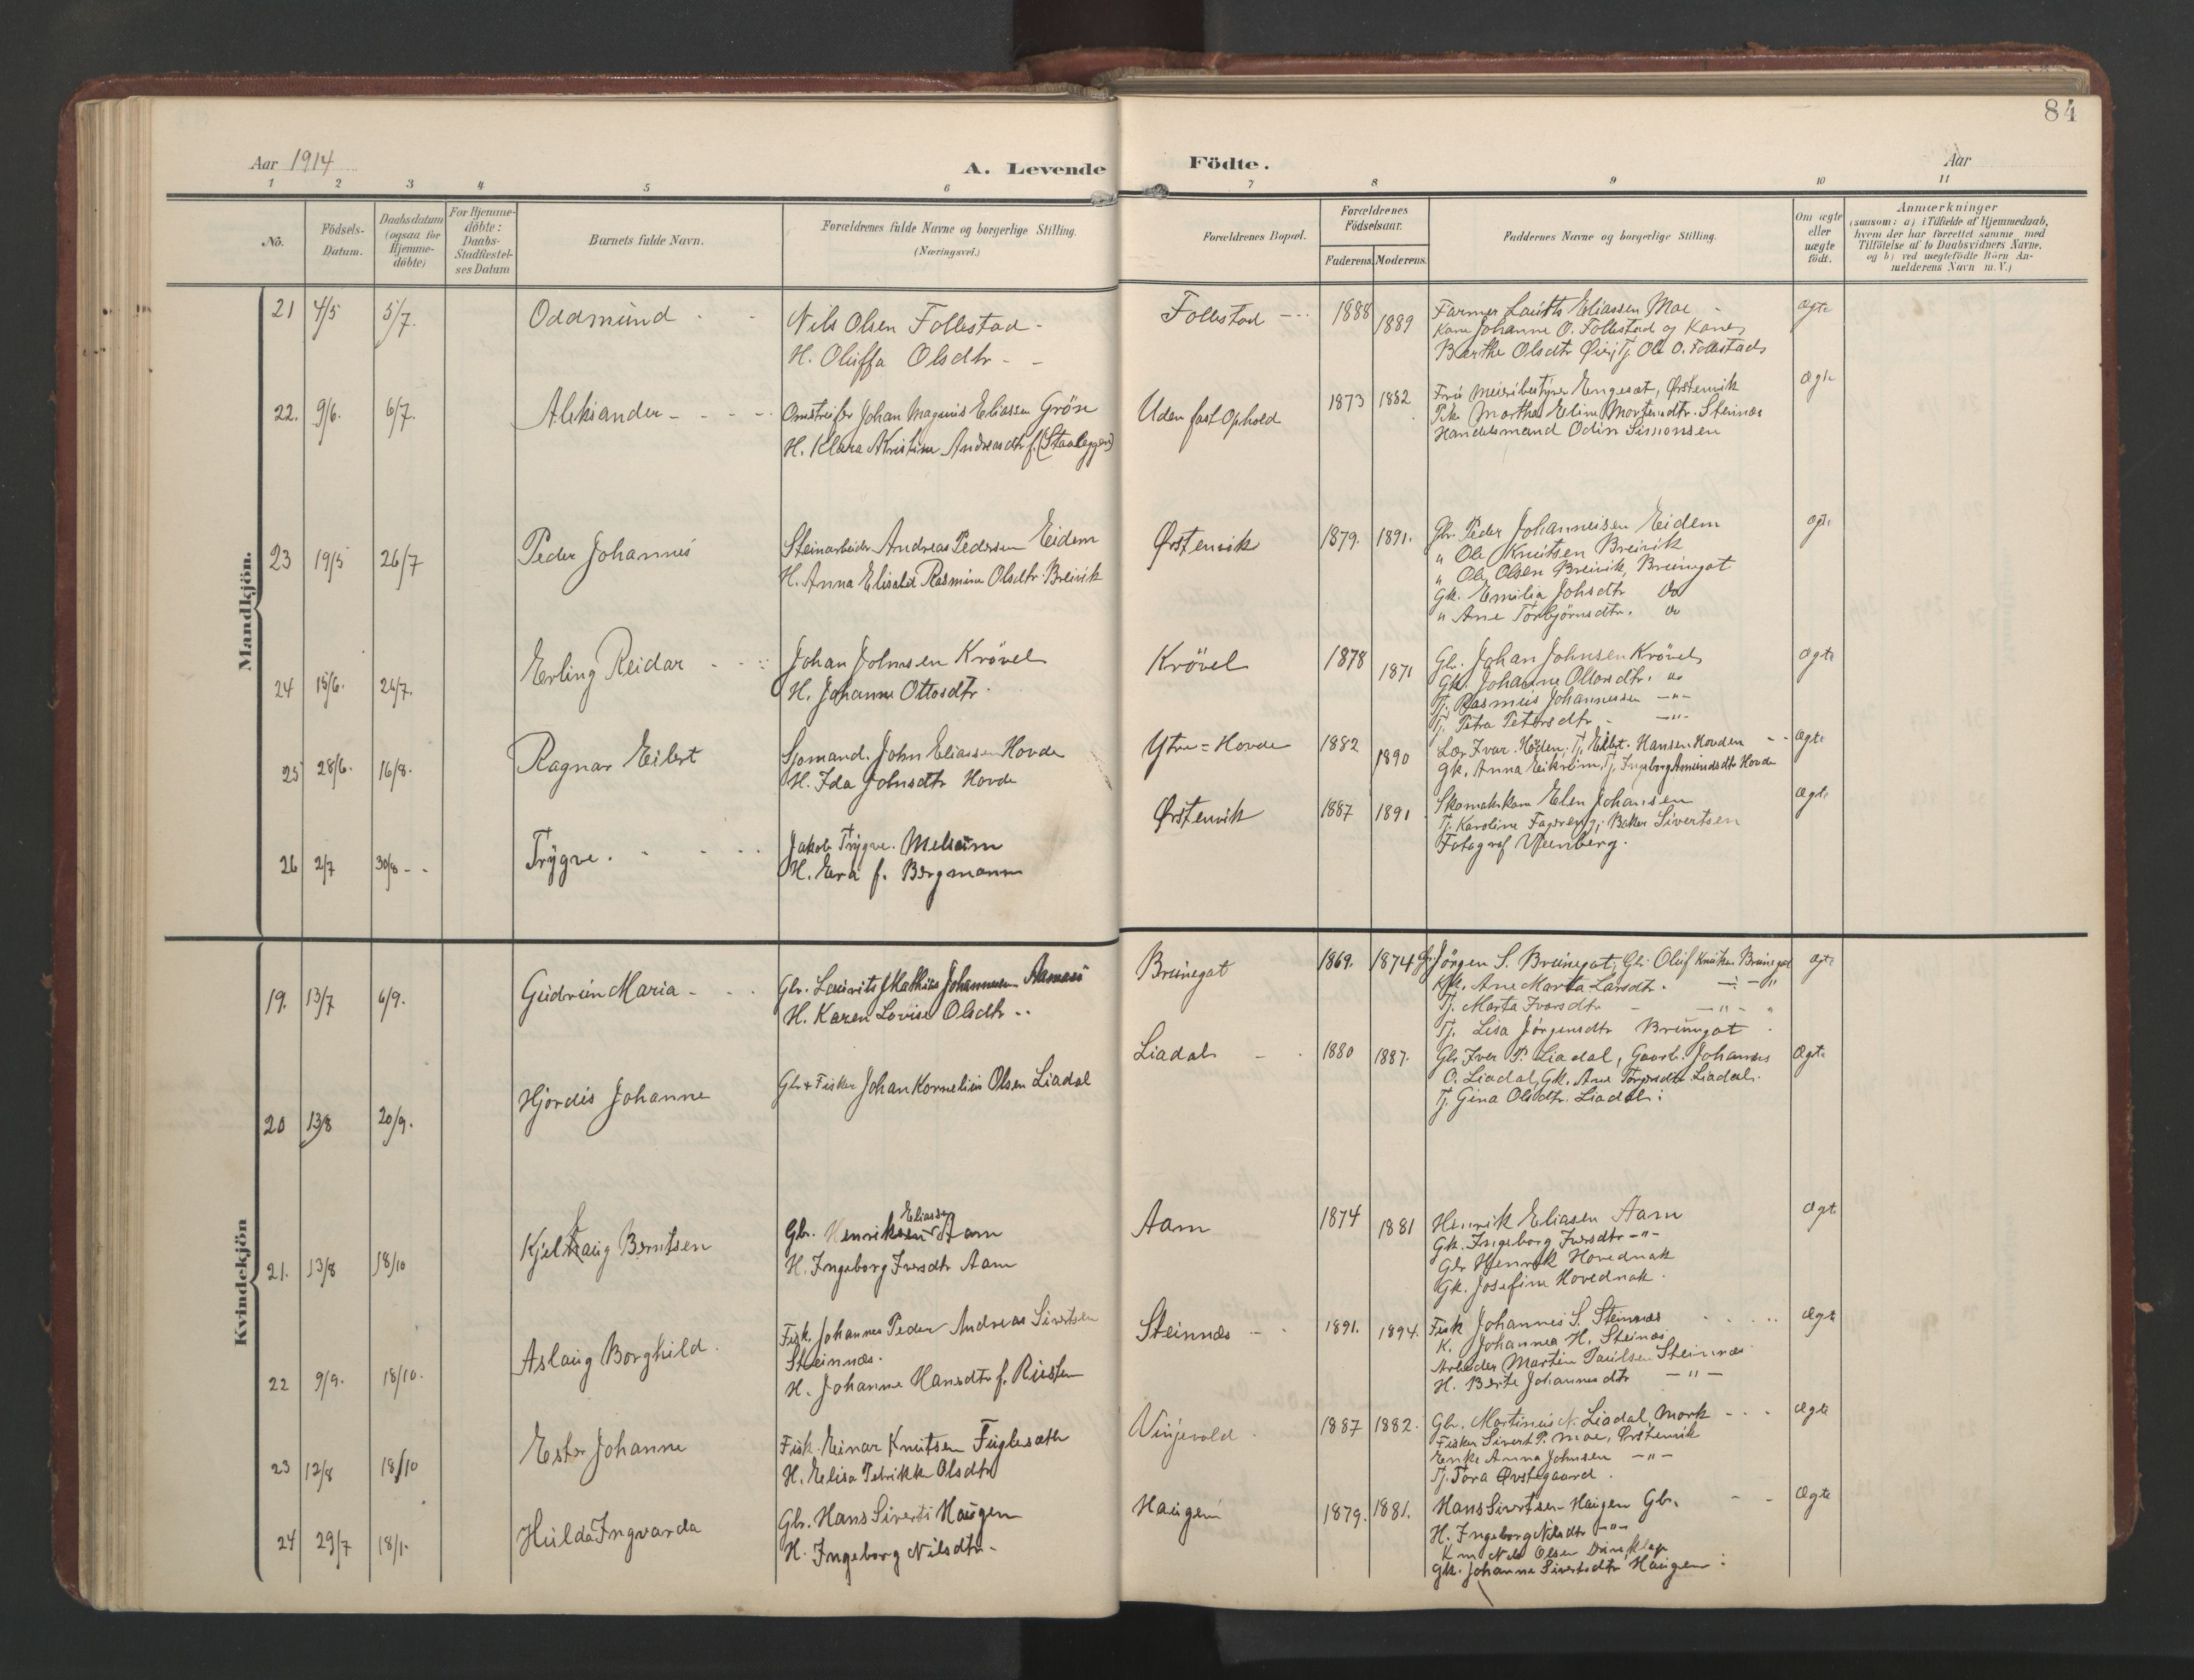 84
Aar 1914
A. Levende Födte.
Aar
1 2 3 4 5 6 7 8 9 10 11
No.
Födsels-
Datum.
Daabsdatum
(ogsaa för
Hjemme-
döbte)
For Hjemme-
döbte:
Daabs-
Stadfæstel-
ses Datum
Barnets fulde Navn.
Forældrenes fulde Navne og borgerlige Stilling.
(Næringsvei.)
Forældrenes Bopæl.
Forældrenes
Födselsaar.
Faderens. Moderens.
Faddernes Navne og borgerlige Stilling.
Om ægte
eller
uægte
födt.
Anmærkninger
(saasom: a) i Tilfælde af Hjemmedaab,
hvem der har forrettet samme med
Tilföielse af to Daabsvidners Navne,
og b) ved uægtefödte Börn An-
melderens Navn m. V.)
Mandkjön.
21 4/5 5/7. Oddmund
Nils Olsen Follestad
H. Oluffa Olsdtr
Follestad 1888 1889
Farmer Laurits Eliassen Moe
Kone Johanne O. Follestad og Kone
Berthe Olsdtr Øie, Tj. Ole O. Follestad
Ægte
22. 9/6. 6/7. Aleksander
Omstreifer Johan Magnus Eliassen Grön
H. Klara Kristine Andreasdtr f. (Staalegger)
Uden fast Ophold 1873 1882
Fru Meieribestyrer Engeset, Ørstenvik
Pike Marthe Eline Mortensdtr. Steinnæs
Handelsmand Odin Simonsen
Ægte
23 19/5 26/7 Peder Johannes
Steinarbeider Andreas Pedersen Eidem
H. Anna Elisabet Rasmine Olsdtr Breivik
Ørstenvik 1879. 1891.
Gbr. Peder Johannesen Eidem
" Ole Knutsen Breivik
" Ole Olsen Breivik, Brungot
Gk. Emilia Johsdtr do
" Ane Torbjörnsdtr. do
Ægte
24 15/6. 26/7. Erling Reidar
Johan Johnsen Krövel
H. Johanne Ottosdtr.
Krövel 1878 1871
Gbr. Johan Johnsen Krövel
Gk. Johanne Ottosdtr. do
Tj. Rasmus Johannessen —"—
Tj. Petra Petersdtr —"—
Ægte
25 28/6. 16/8. Ragnar Eilert
Sjömand. John Eliassen Hovde
H. Ida Johnsdtr Hovde
Ytre=Hovde 1882 1890
Lær. Ivar Hovden. Tj. Eilert Hansen Hovden
Gk. Anna Eikreim, Tj. Ingeborg Amundsdtr Hovde
Ægte
26 2/7 30/8 Trygve.
Jakob Trygve. Melseim
H. Eva f. Bergmann
Ørstenvik 1887 1891
Skomakerkone Elen Johansen
Tj. Karoline Fagereng, Baker Sivertsen
Fotograf Veenberg.
Ægte
Kvindekjön
19. 13/7 6/9. Gudrun Maria
Gbr. Laurits Mathias Johannessen Aamaas
H. Karen Lovise Olsdtr
Brungot 1869. 1874
Gbr. Jörgen S. Brungot, Gbr. Oluf Knutsen Brungot
Gk. Ane Marta Larsdtr. —"—
Tj. Marta Ivarsdtr —"—
Tj. Lisa Jörgensdtr Brungot
Ægte
20 13/8 20/9. Hjördis Johanne
Gbr & Fisker Johan Kornelius Olsen Liadal
Liadal 1880 1887.
Gbr Iver P. Liadal, Gaarb. Johannes
O. Liadal, Gk. Ane Torgersdtr Liadal.
Tj. Gina Olsdtr. Liadal.
Ægte
21. 13/8 18/10 Kjellaug Berntsen
Gbr. Henrik Eliassen Aam
H. Ingeborg Iversdtr Aam
Aam 1874 1881
Henrik Eliasen Aam
Gk. Ingeborg Iversdtr —"—
Gbr Henrik Hovednak
Gk. Josefine Hovednak
Ægte
22 9/9. 18/10. Aslaug Borghild.
Fisk. Johannes Peder Andreas Sivertsen
Steinnæs.
H. Johanne Hansdtr f. Rusten
Steinnæs 1891. 1894.
Fisk Johannes S. Steinnæs
K. Johanna H. Steinæs
Arbeider Martin Paulsen Steinnæs
H. Berte Johannesdtr —"—
Ægte
23 12/8 18/10 Ester Johanne
Fisk. Einar Knutsen Fuglesæth
H. Elisa Petrikke Olsdtr
Vinjevold 1887 1882.
Gbr. Martinus N. Liadal, Mork
Fisker Sivert P. Moe, Ørstenvik
Enke Anna Johnsen —"—
Tj. Tora Øvstegaard.
Ægte
24 29/7 18/1. Hulda Ingvarda
Gbr. Hans Siverts Haugen
H. Ingeborg Nilsdtr.
Haugen 1879. 1881.
Hans Sivertsen Haugen Gbr.
H. Ingeborg Nilsdtr —"—
Km Nils Olsen
Gk. Johanna Sivertsdtr Haugen
Ægte